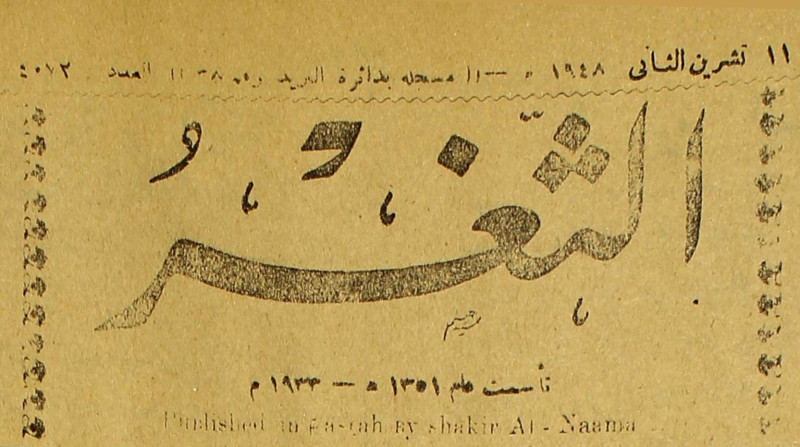 ١١ تشرين الثاني ١٩٤٨ مسجله بدائرة البريد العدد
الثغر
تأسست عام ١٣٥١ ه — ١٩٣٣ م
Published in By shakir Al - Naama